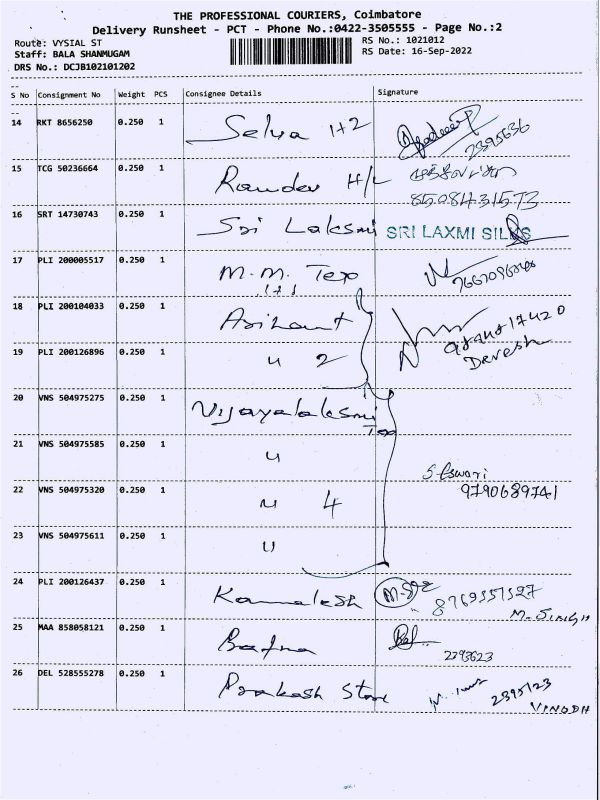 THE PROFESSIONAL COURIERS, Coimbatore
Delivery Runsheet - PCT - Phone No.:0422-3505555 - Page No.:2
Route: VYSIAL ST RS No.: 1021012
Staff: BALA SHANMUGAM RS Date: 16-Sep-2022
DRS No.: DCJB102101202
S No Consignment No Weight PCS Consignee Details Signature
14 RKT 8656250 0.250 1 Selva 1+2 2395636
15 TCG 50236664 0.250 1 Ramdev H/L 8508431573
16 SRT 14730743 0.250 1 Sri Laksmi SRI LAXMI SILKS
17 PLI 200005517 0.250 1 M.M. Tex
1+1
18 PLI 200104033 0.250 1 Arihant
19 PLI 200126896 0.250 1 u 2 Devesh
20 VNS 504975275 0.250 1 Vijayalaksmi
Tex
21 VNS 504975585 0.250 1 u
S Eswari
22 VNS 504975320 0.250 1 u 4 9790689741
23 VNS 504975611 0.250 1 u
24 PLI 200126437 0.250 1 Kamalesh
M. SINGH
25 MAA 858058121 0.250 1 Bafna
2393623
26 DEL 528555278 0.250 1 Prakash Store 2395123
VINODH